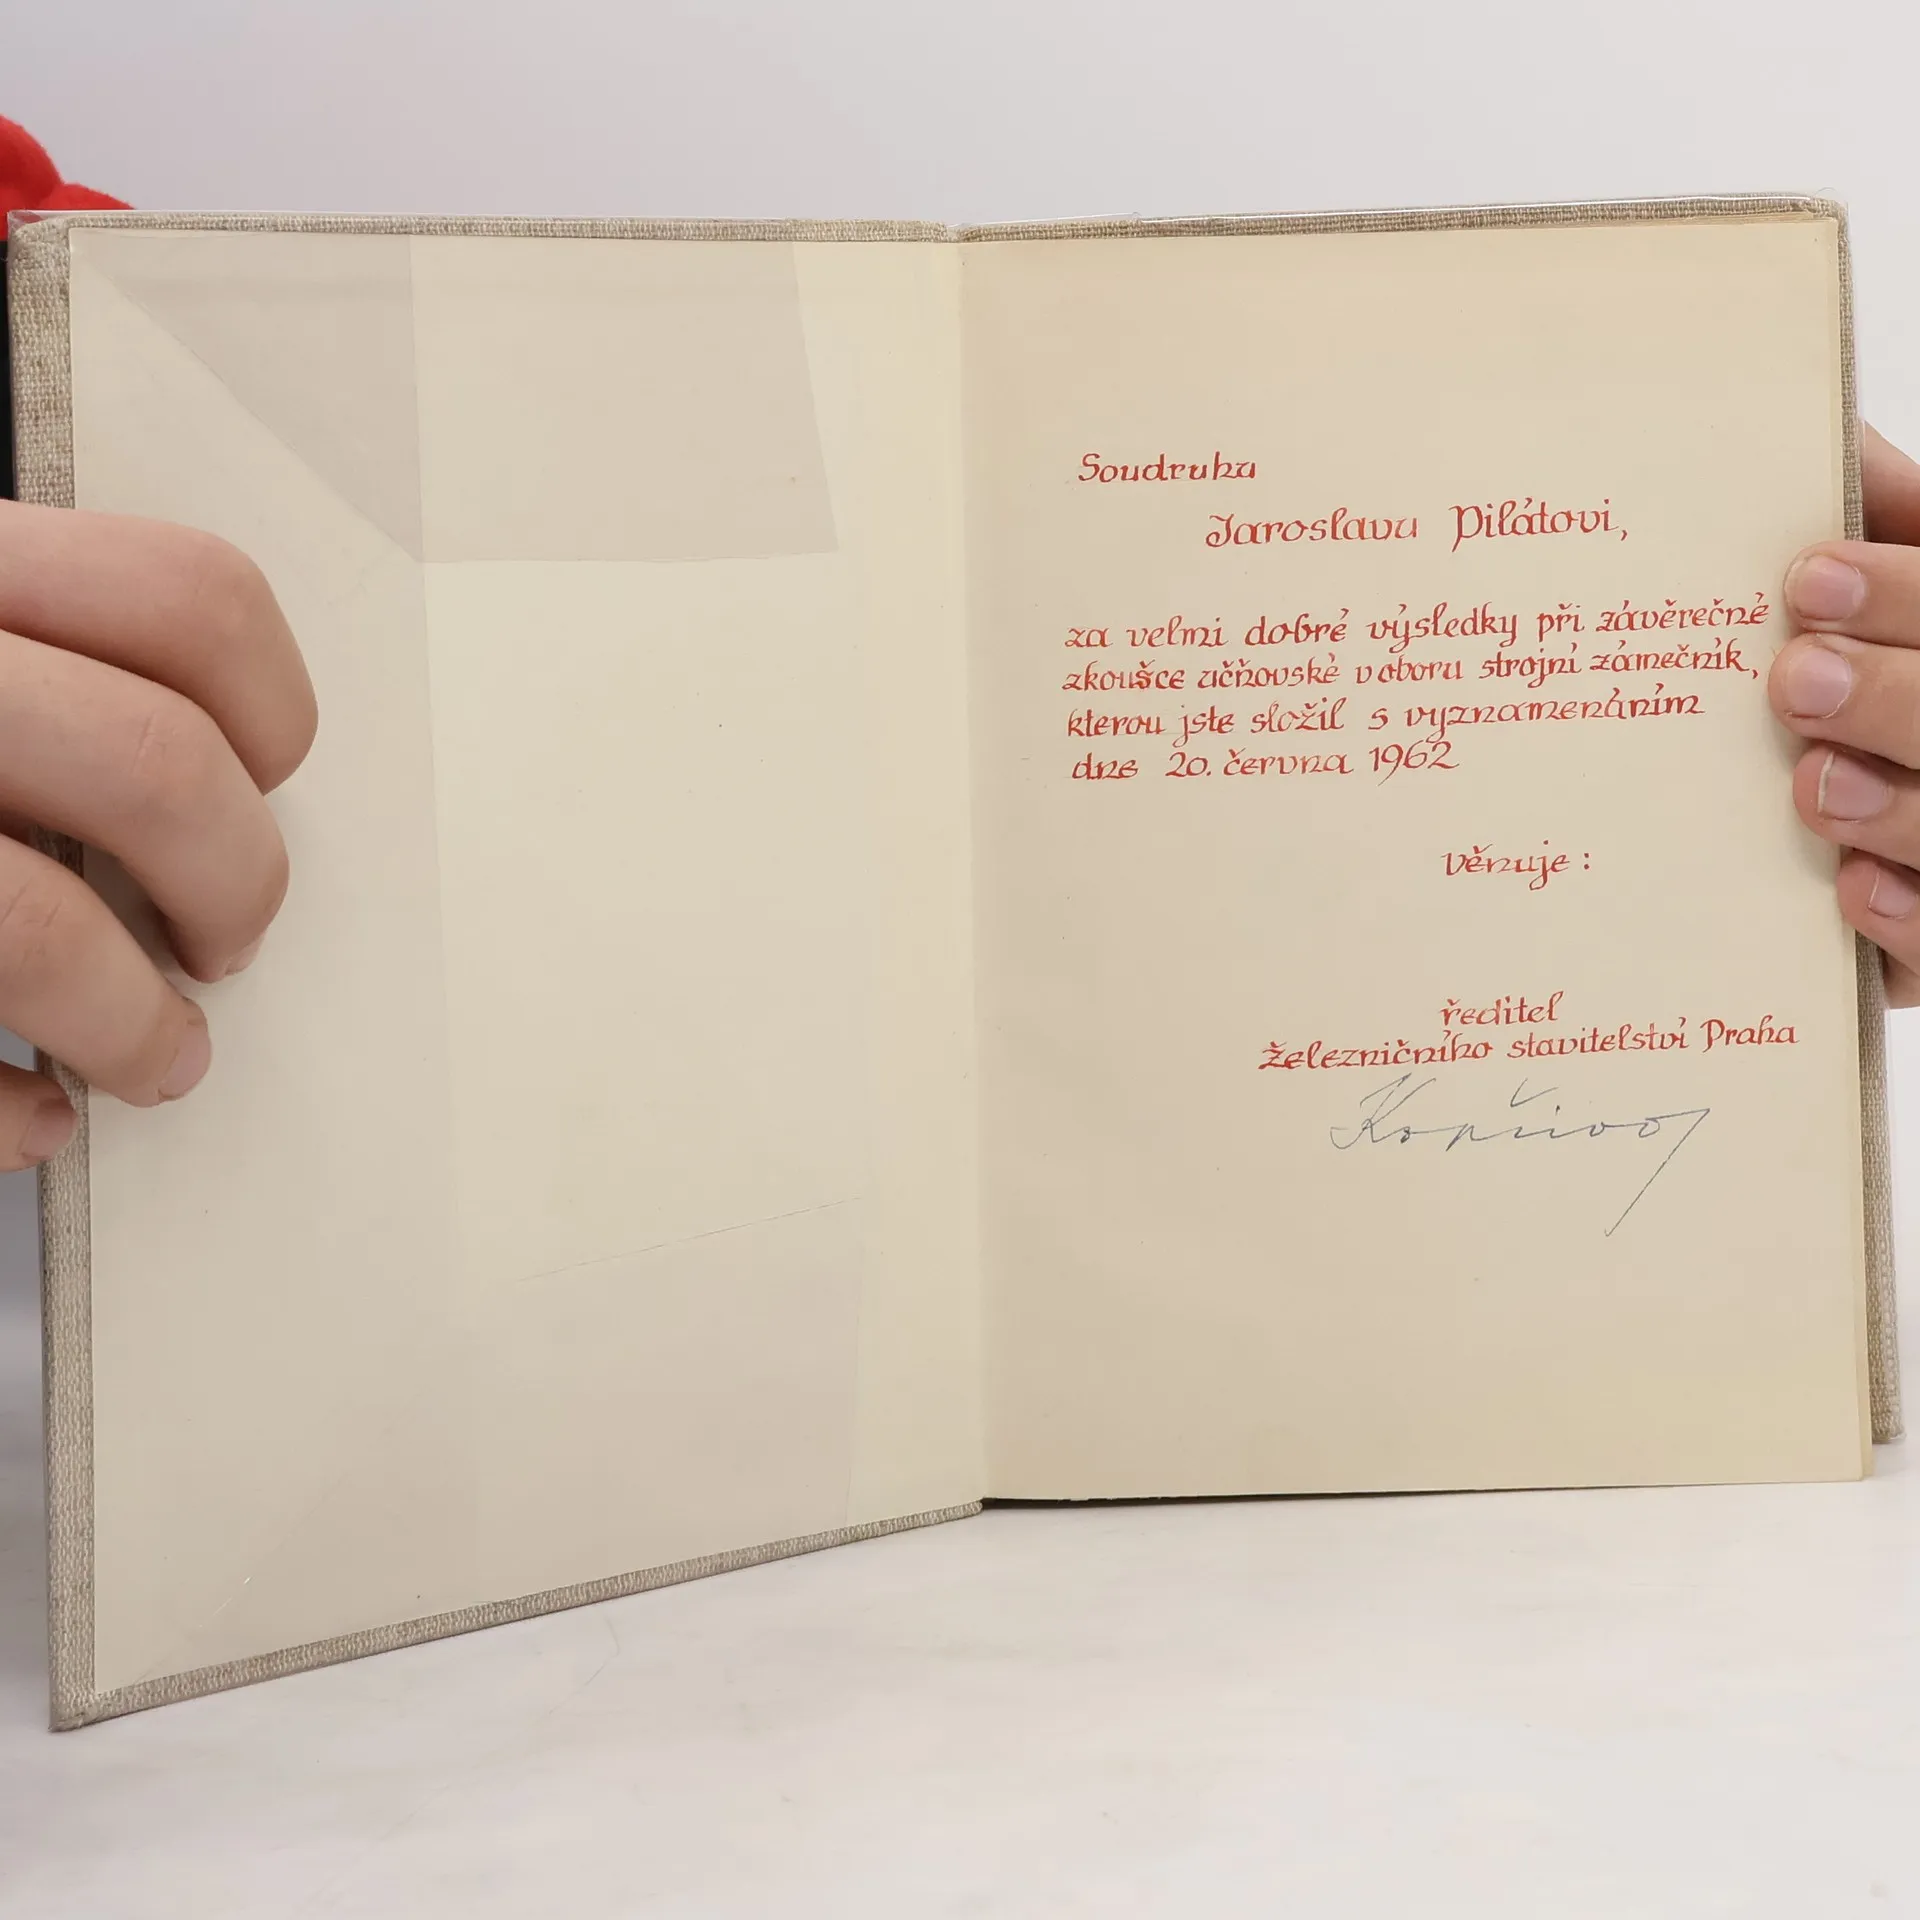 Soudruhu
Jaroslavu Pilátovi,
za velmi dobré výsledky při závěrečné
zkoušce učňovské v oboru strojní zámečník,
kterou jste složil s vyznamenáním
dne 20. června 1962
Věnuje :
ředitel
Železničního stavitelství Praha